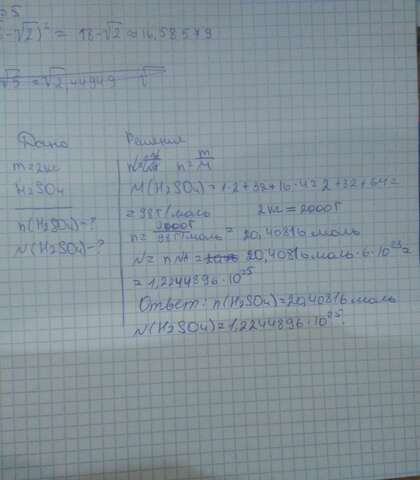 -√2)² = 18-√2 ≈ 16,58579
√5 = √2,44949 √
Дано
m=2кг
H₂SO₄
n(H₂SO₄)-?
N(H₂SO₄)-?
Решения
n= m/M
M(H₂SO₄)=1·2+32+16·4=2+32+64=
=98г/моль 2кг=2000г
n= 2000г/98г/моль = 20,40816 моль
N= nNA= 20,40816 моль·6·10²³=
=1,2244896·10²⁵
Ответ: n(H₂SO₄)=20,40816 моль
N(H₂SO₄)=1,2244896·10²⁵.